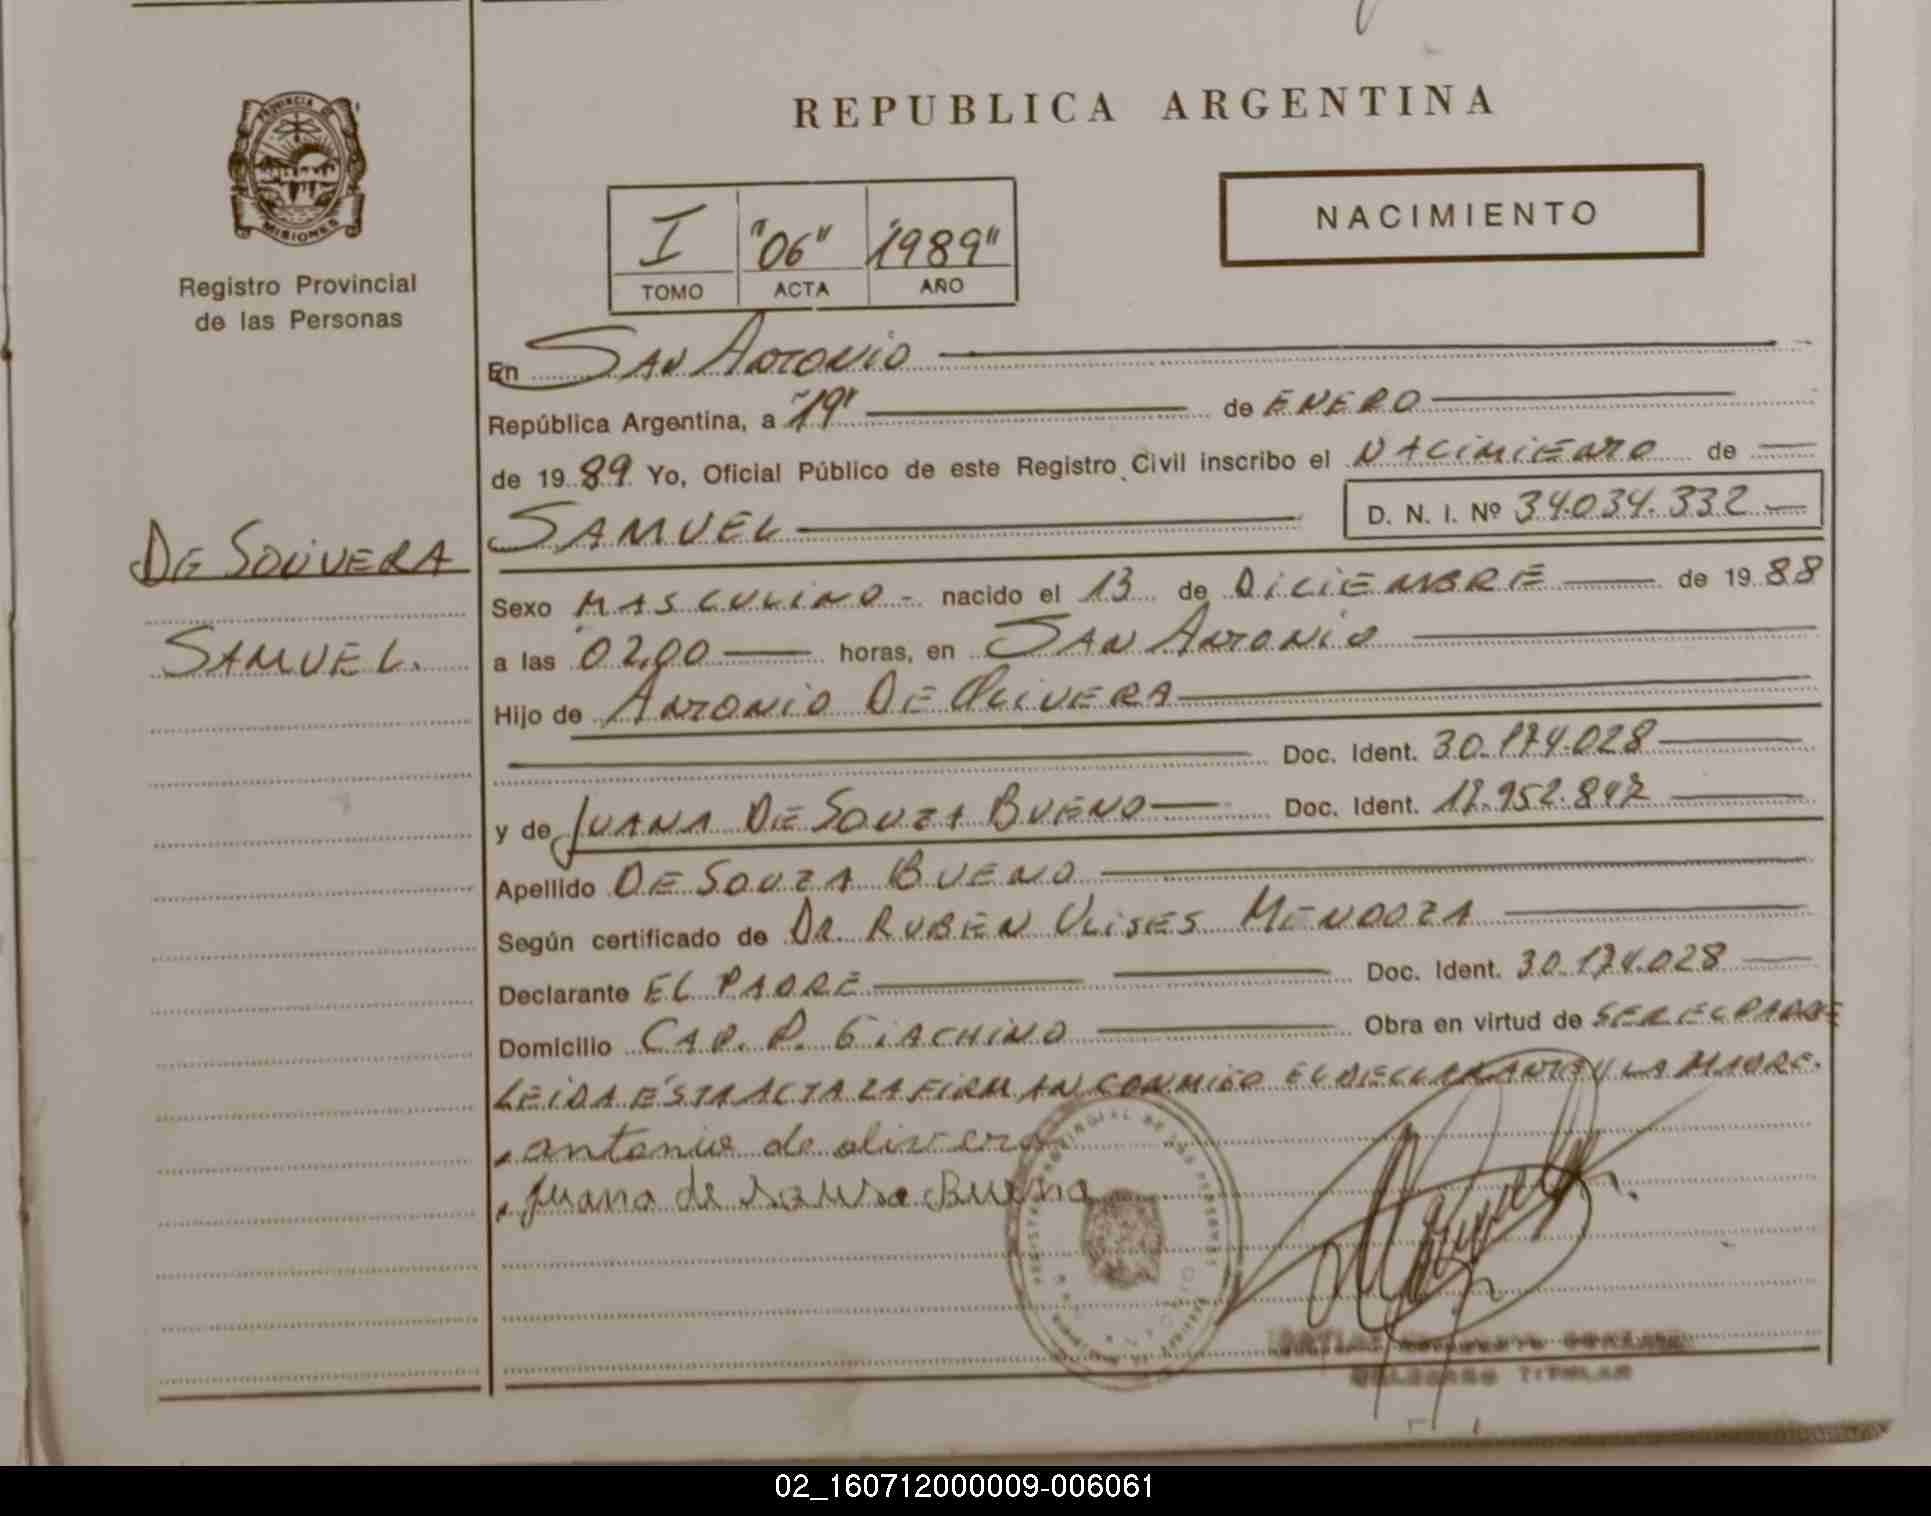 REPUBLICA ARGENTINA
PROVINCIA DE
MISIONES
Registro Provincial
de las Personas
I "06" "1989"
TOMO ACTA AÑO
NACIMIENTO
En SAN ANTONIO
República Argentina, a "19" de ENERO
de 1989 Yo, Oficial Público de este Registro Civil inscribo el NACIMIENTO de
SAMUEL D. N. I. Nº 34.034.332
DE
SAMUEL.
Sexo MASCULINO - nacido el 13 de DICIEMBRE de 1988
a las 02,00 horas, en SAN ANTONIO
Hijo de ANTONIO DE OLIVERA
Doc. Ident. 30.174.028
y de JUANA DE SOUZA BUENO Doc. Ident.
Apellido DE SOUZA BUENO
Según certificado de DR. RUBEN ULISES MENDOZA
Declarante EL PADRE Doc. Ident. 30.174.028
Domicilio CAP. P. GIACHINO Obra en virtud de SER EL PADRE
LEIDA ESTA ACTA LA FIRMAN CONMIGO EL DECLARANTE Y LA MADRE.
antonio de olivera
Juana de Sousa Bueno
TITULAR
02_160712000009-006061